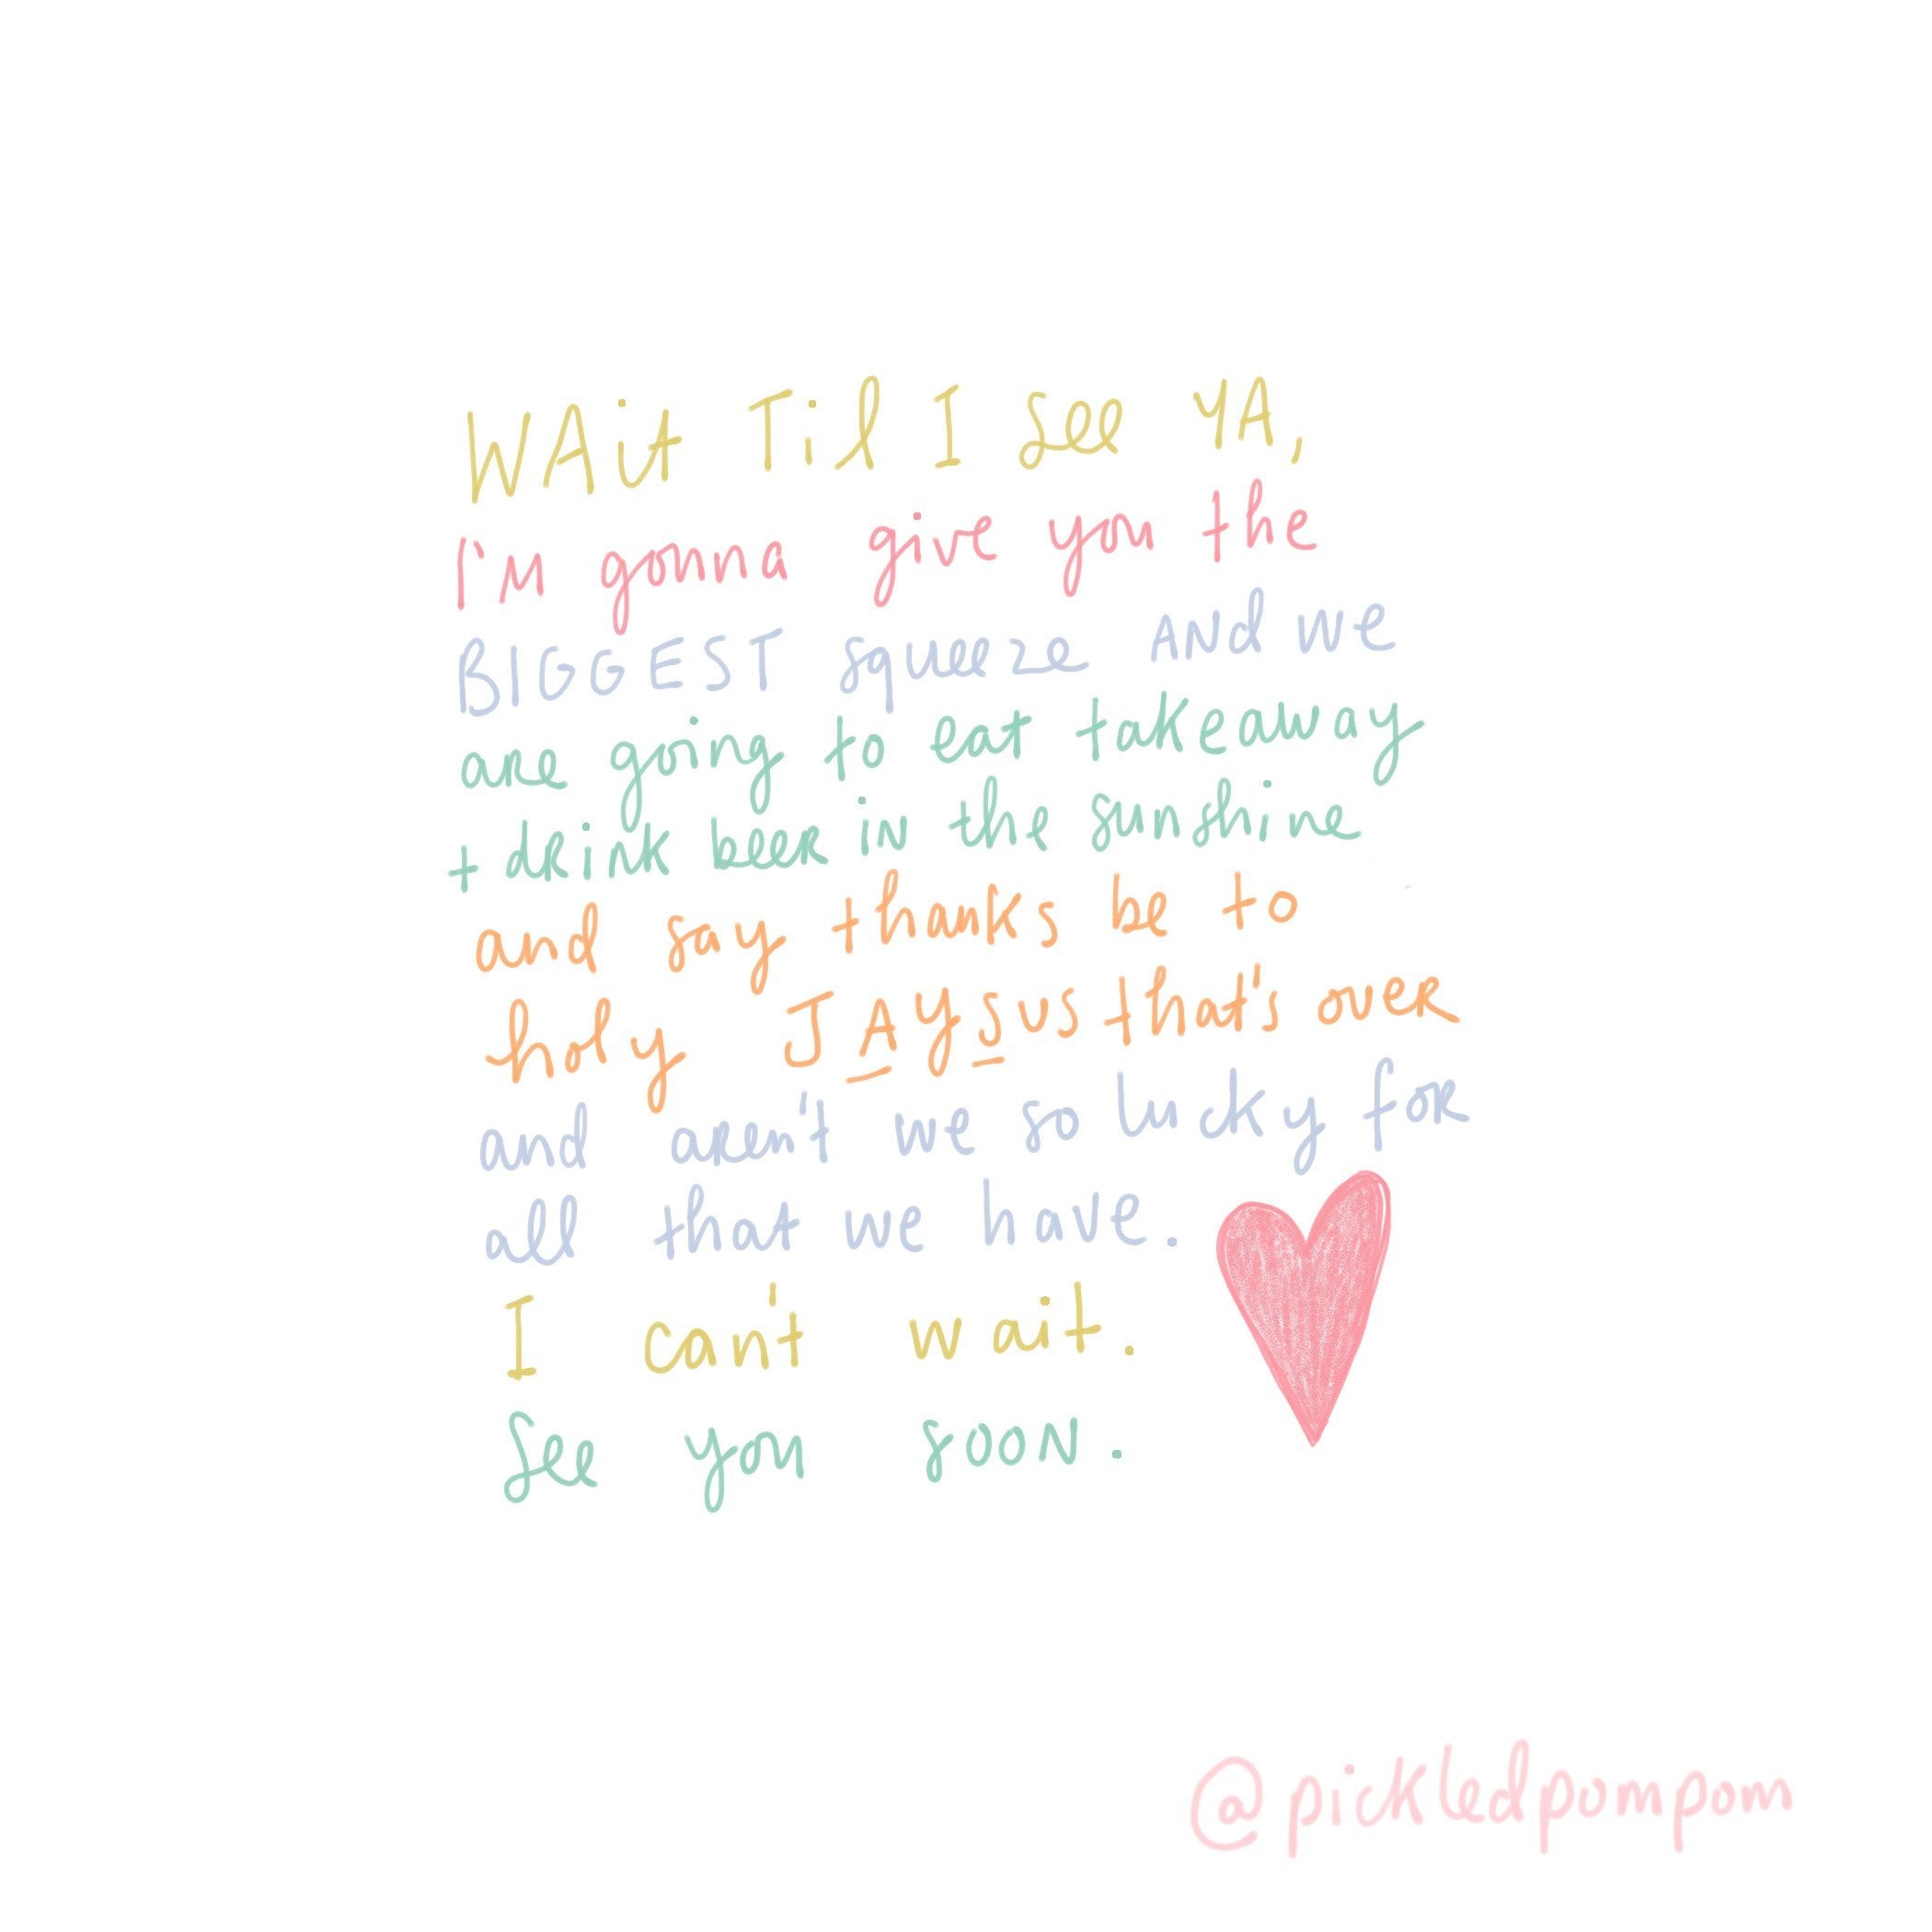 WAit Til I see YA,
I'm gonna give you the
BIGGEST squeeze ANd we
are going to eat takeaway
+ drink beer in the sunshine
and say thanks be to
holy JAYSUS that's over
and aren't we so lucky for
all that we have.
I can't wait.
See you soon.
@pickledpompom